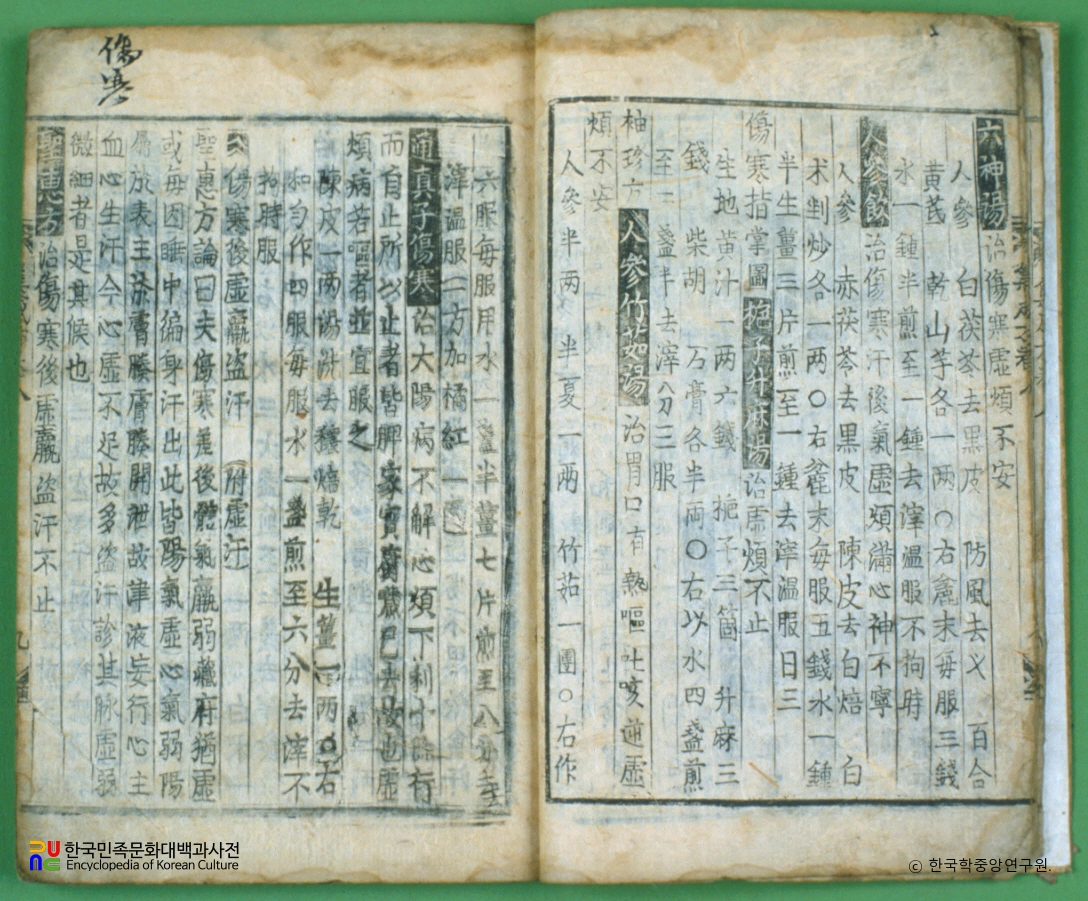 六神湯 治傷寒虛煩不安
人參 白茯苓去黑皮 防風去义 百合
黃芪 乾山芋各一两○右麄末每服三錢
水一鍾半煎至一鍾去滓溫服不拘時
人參飲 治傷寒汗後氣虛煩滿心神不寧
人參 赤茯苓去黑皮 陳皮去白焙 白
术剉炒各一两○右麄末每服五錢水一鍾
半生薑三片煎至一鍾去滓溫服日三
傷寒指掌圖 梔子升麻湯 治虛煩不止
生地黃汁一两六錢 梔子三箇 升麻三
錢 柴胡 石膏各半两○右以水四盞煎
至二盞半去滓分三服
袖珍方 人參竹茹湯 治胃口有熱嘔吐咳逆虛
煩不安
人參半两 半夏一两 竹茹一團○右作
六服每服用水一盞半薑七片煎至八分去
滓溫服一方加橘紅一
通真子傷寒 治大陽病不解心煩下利十餘行
而自止所以止者皆脾家實腐穢已去故也虛
煩病若嘔者並宜服之
陳皮一两湯洗去穰焙乾 生薑一两○右
和勻作四服每服水一盞煎至六分去滓不
拘時服
傷寒後虛羸盜汗 附虛汗
聖惠方論曰夫傷寒差後體氣羸弱藏府猶虛
或每因睡中徧身汗出此皆陽氣虛心氣弱陽
屬於表主於膚腠膚腠開泄故津液妄行心主
血心生汗今心虛不足故多盜汗診其脉虛弱
微細者是其候也
聖惠方 治傷寒後虛羸盜汗不止
傷寒
九
한국민족문화대백과사전
Encyclopedia of Korean Culture
© 한국학중앙연구원.